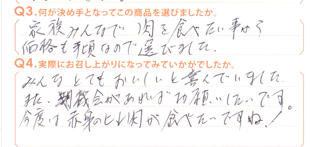 Q3.何が決め手となってこの商品を選びましたか。
家族みんなで肉を食べたい事から
価格も手頃なので選びました。
Q4.実際にお召し上がりになってみていかがでしたか。
みんなとてもおいしいと喜んでいました
また、機会があればお願いしたいです。
今度は赤身のヒレ肉が食べたいですね!